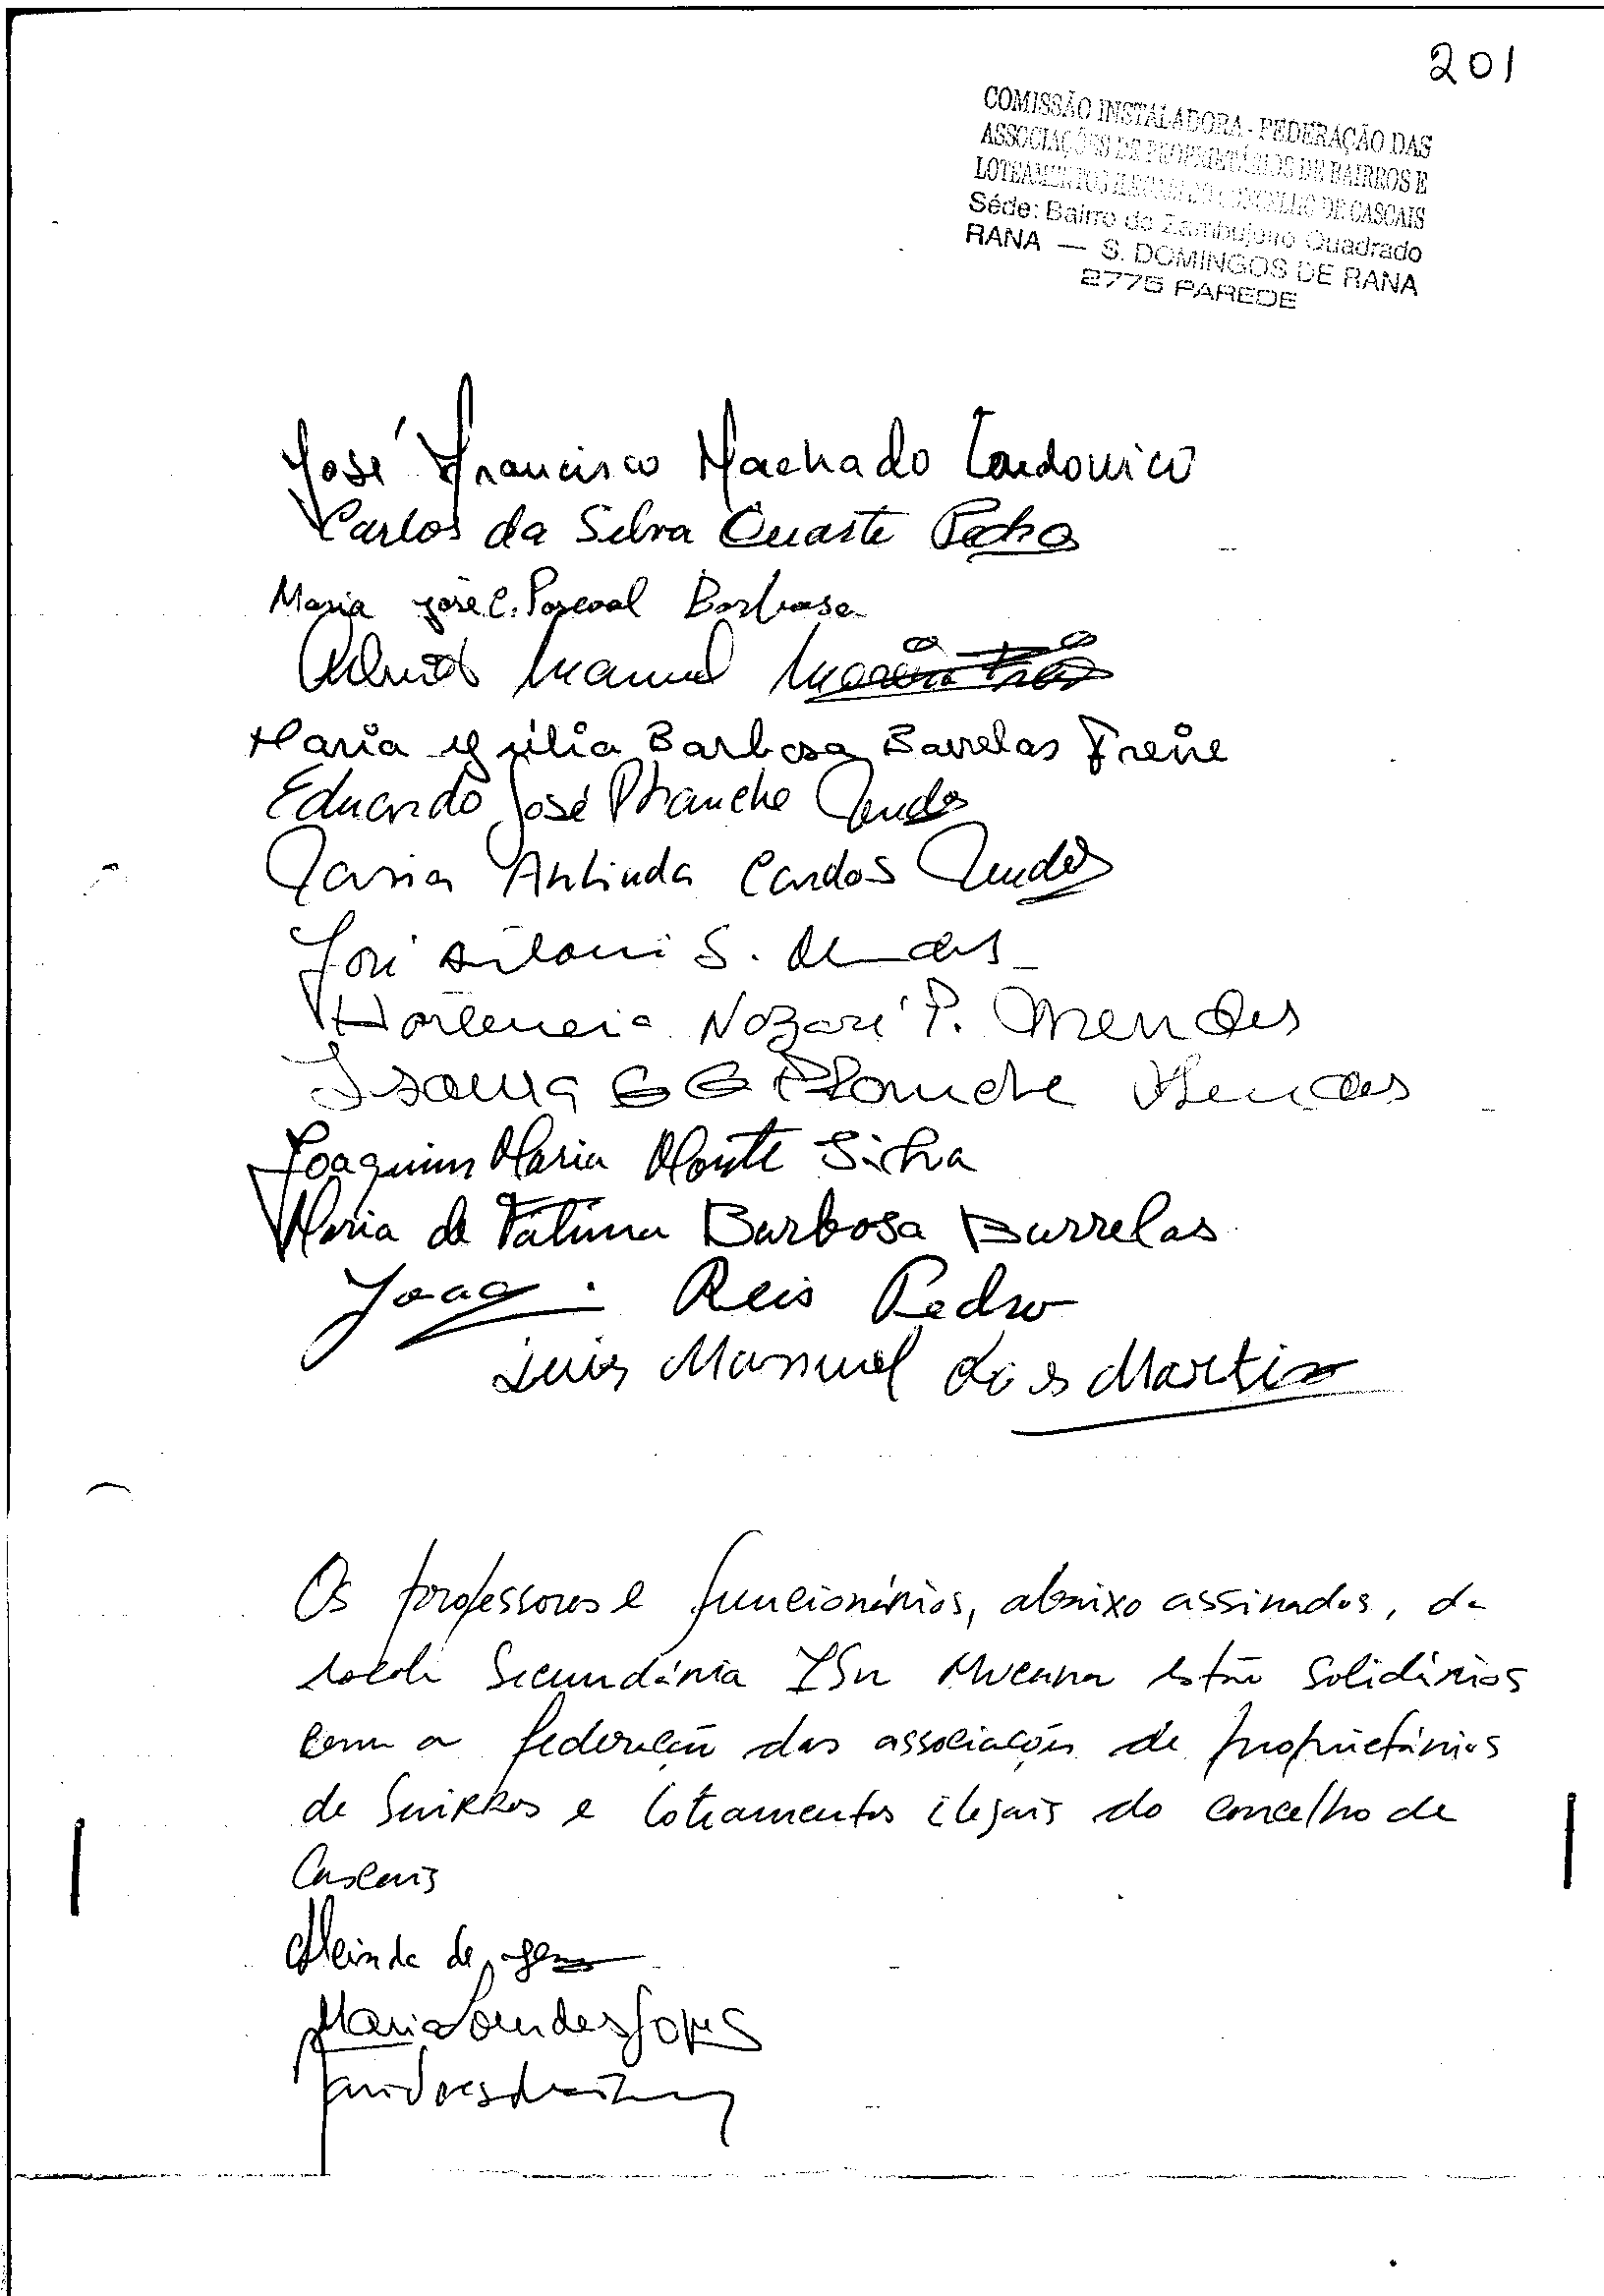 201
COMISSÃO INSTALADORA - FEDERAÇÃO DAS
ASSOCIAÇÕES DE PROPRIETÁRIOS DE BAIRROS E
LOTEAMENTOS ILEGAIS DO CONCELHO DE CASCAIS
Séde: Bairro do Zambujeiro Quadrado
RANA — S. DOMINGOS DE RANA
2775 PAREDE
José Francisco Machado
Carlos da Silva Duarte Pedro
Maria José C. Pascoal Barbosa
Manuel
Maria Júlia Barbosa Barrelas Freire
Eduardo José Planche Mendes
Maria Arlinda Cardos Mendes
José António S. Mendes
Hortencia Nazaré P. Mendes
Isaura Planche Mendes
Joaquim Maria Monte Silva
Maria de Fátima Barbosa Barrelas
Reis Pedro
Luis Manuel Martins
Os professores e funcionários, abaixo assinados, da
Secundária estão solidários
com a federação das associações de proprietários
de bairros e loteamentos ilegais do concelho de
Cascais
de
Maria Lourdes Lopes